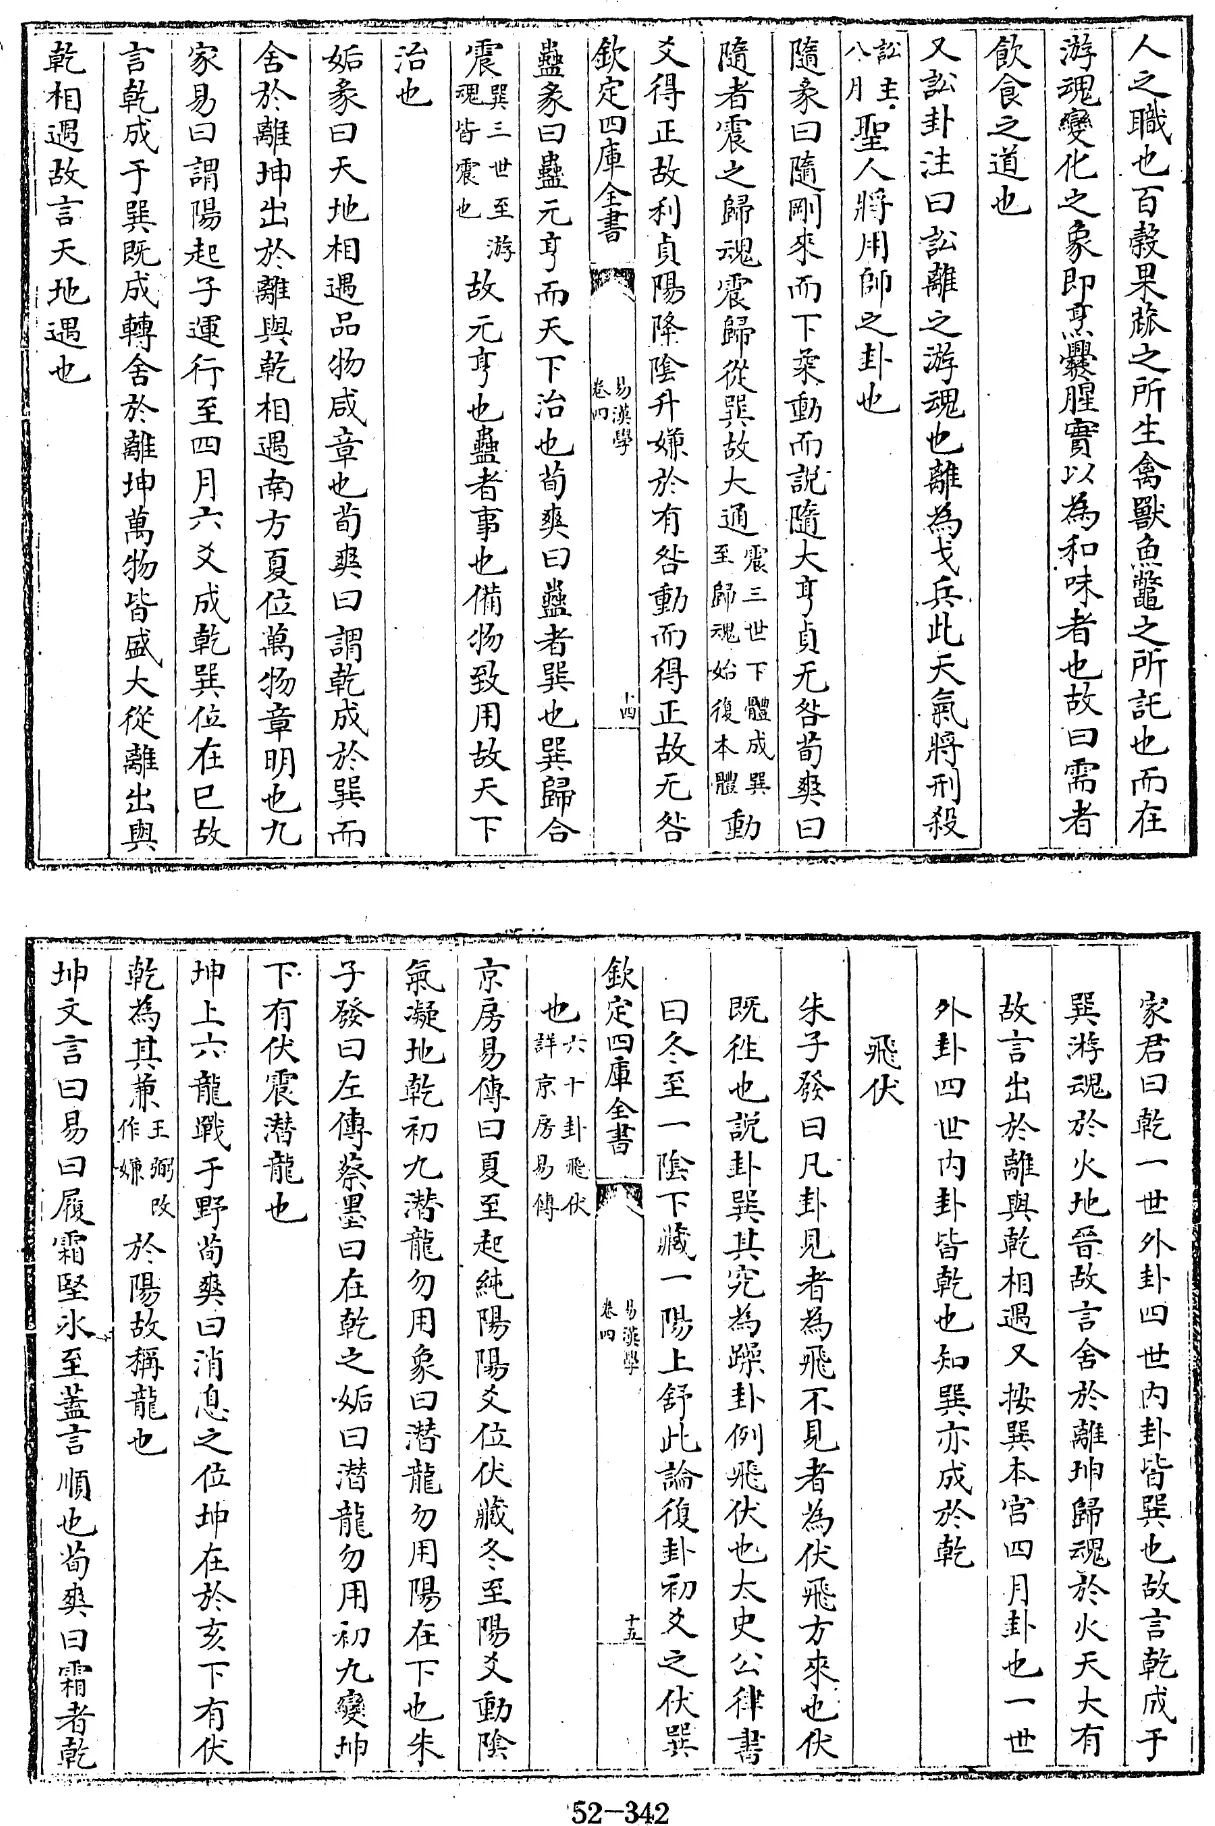 人之職也百穀果蓏之所生禽獸魚鼈之所託也而在
游魂變化之象即烹爨腥實以為和味者也故曰需者
飲食之道也
又訟卦注曰訟離之游魂也離為戈兵此天氣將刑殺
訟主八月聖人將用師之卦也
隨彖曰隨剛來而下柔動而說隨大亨貞无咎荀爽曰
隨者震之歸魂震歸從巽故大通震三世下體成巽至歸魂始復本體動
爻得正故利貞陽降陰升嫌於有咎動而得正故无咎
欽定四庫全書
易漢學
卷四
十四
蠱彖曰蠱元亨而天下治也荀爽曰蠱者巽也巽歸合
震巽三世至游魂皆震也故元亨也蠱者事也備物致用故天下
治也
姤彖曰天地相遇品物咸章也荀爽曰謂乾成於巽而
舍於離坤出於離與乾相遇南方夏位萬物章明也九
家易曰謂陽起子運行至四月六爻成乾巽位在巳故
言乾成于巽既成轉舍於離坤萬物皆盛大從離出與
乾相遇故言天地遇也
家君曰乾一世外卦四世内卦皆巽也故言乾成于
巽游魂於火地晉故言舍於離坤歸魂於火天大有
故言出於離與乾相遇又按巽本宫四月卦也一世
外卦四世内卦皆乾也知巽亦成於乾
飛伏
朱子發曰凡卦見者為飛不見者為伏飛方來也伏
既往也說卦巽其究為躁卦例飛伏也太史公律書
曰冬至一陰下藏一陽上舒此論復卦初爻之伏巽
欽定四庫全書
易漢學
卷四
十五
也六十卦飛伏詳京房易傳
京房易傳曰夏至起純陽陽爻位伏藏冬至陽爻動陰
氣凝地乾初九潛龍勿用象曰潛龍勿用陽在下也朱
子發曰左傳蔡墨曰在乾之姤曰潛龍勿用初九變坤
下有伏震潛龍也
坤上六龍戰于野荀爽曰消息之位坤在於亥下有伏
乾為其兼王弼改作嫌於陽故稱龍也
坤文言曰易曰履霜堅冰至蓋言順也荀爽曰霜者乾
52-342